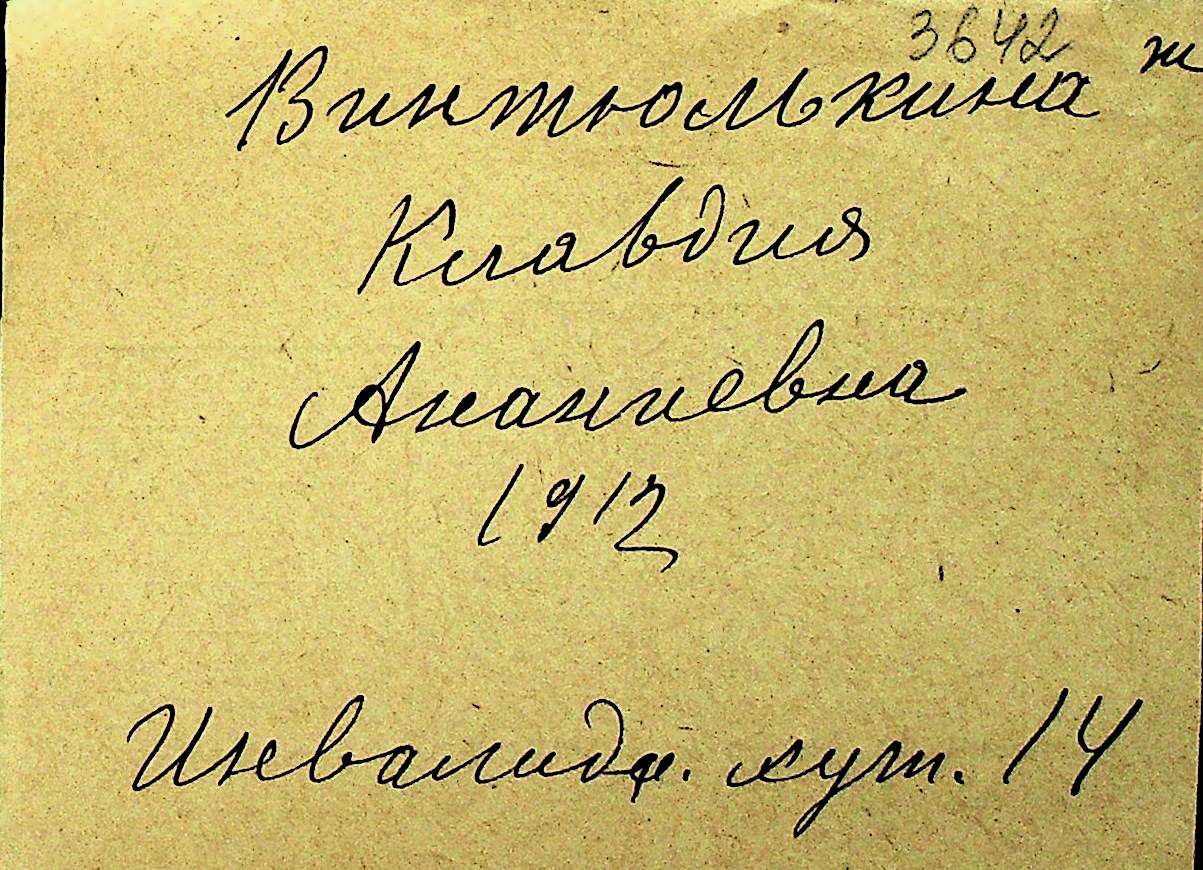 3642
Винтюлькина ж
Клавдия
Ананиевна
1912
Инвалидн. хут. 14